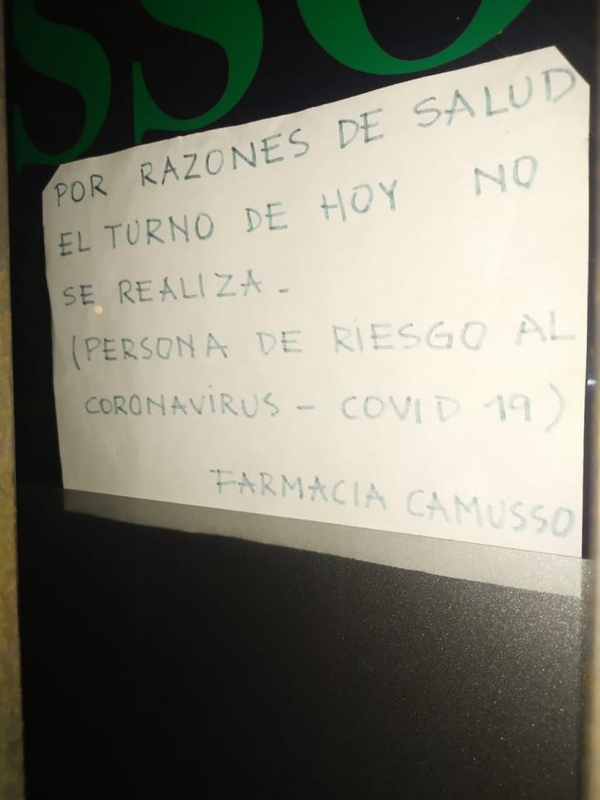 SSO
POR RAZONES DE SALUD
EL TURNO DE HOY NO
SE REALIZA.
(PERSONA DE RIESGO AL
CORONAVIRUS - COVID 19)
FARMACIA CAMUSSO